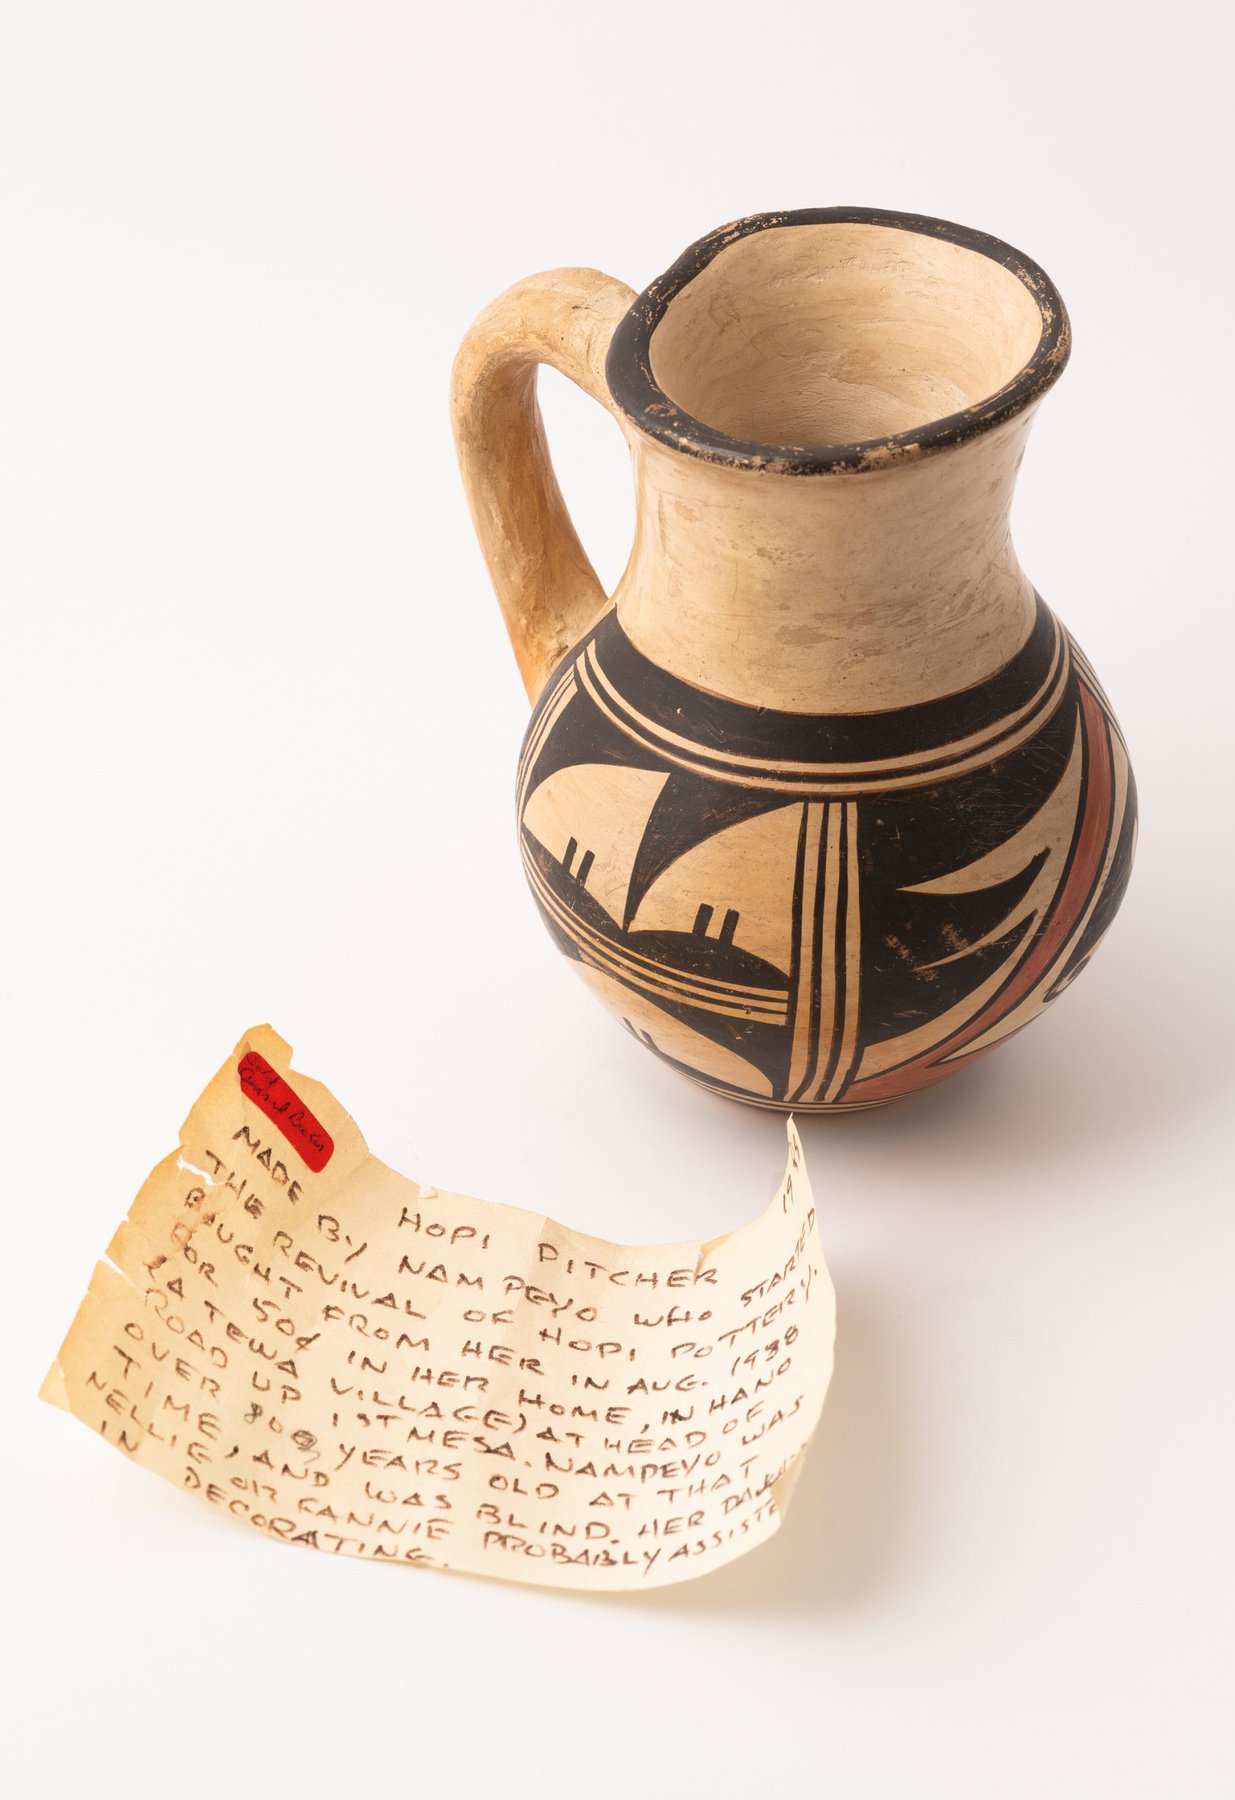 HOPI PITCHER
MADE BY NAMPEYO WHO STARTED
THE REVIVAL OF HOPI POTTERY.
BOUGHT FROM HER IN AUG. 1938
FOR 50¢ IN HER HOME, IN HANO
(A TEWA VILLAGE) AT HEAD OF
ROAD UP 1ST MESA. NAMPEYO WAS
OVER YEARS OLD AT THAT
TIME, AND WAS BLIND. HER
NELLIE OR FANNIE PROBABLY ASSISTE
IN DECORATING.